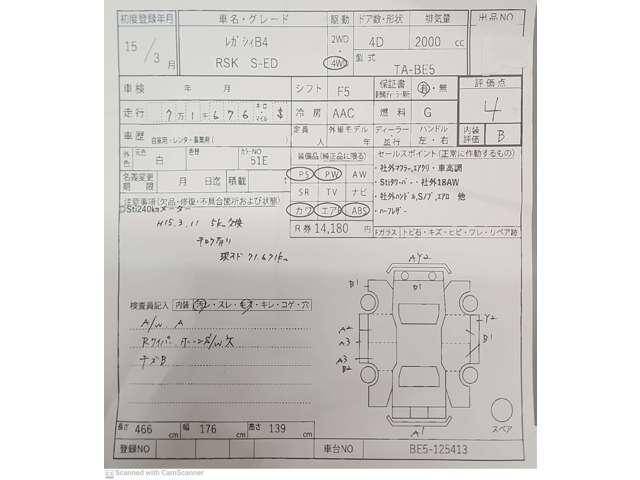 初度登録年月 車名・グレード 駆動 ドア数・形状 排気量 出品NO
15/3月 レガシィB4 2WD 4D 2000 cc
RSK S-ED 4WD 型式 TA-BE5
車検 年 月 シフト F5 保証書 有・無 評価点
走行 7万1千676 キロ・マイル $ 冷房 AAC 燃料 G 4
車歴 自家用・レンタ・事業用( ) 定員 人 外車モデル 年 ディーラー・並行 ハンドル 左・右 内装評価 B
外色 元色 白 色替 カラーNO 51E 装備品(純正品に限る) セールスポイント(正常に作動するもの)
名義変更期限 月 日迄 積載 PS PW AW ・社外マフラー,エアクリ・車高調
SR TV ナビ ・Stiタワーバー・社外18AW
注意事項(欠品・修復・不具合箇所および状態) カワ エアB ABS ・社外ハンドル,Sノブ,エアロ 他
Sti240kmメーター R券 14,180円 ・ハーフレザー
H15.3.11 5K交換 Fガラス トビ石・キズ・ヒビ・ワレ・リペア跡
チロク有り
現スド 71.671km
検査員記入 内装 汚レ・スレ・キズ・キレ・コゲ・穴
A/W A
Rワイパー
チズB
AY2
B1 B1 Y2
A2
A3 B1
A3
B2
A1
スペア
長さ 466 cm 幅 176 cm 高さ 139 cm
登録NO 車台NO BE5-125413
Scanned with CamScanner